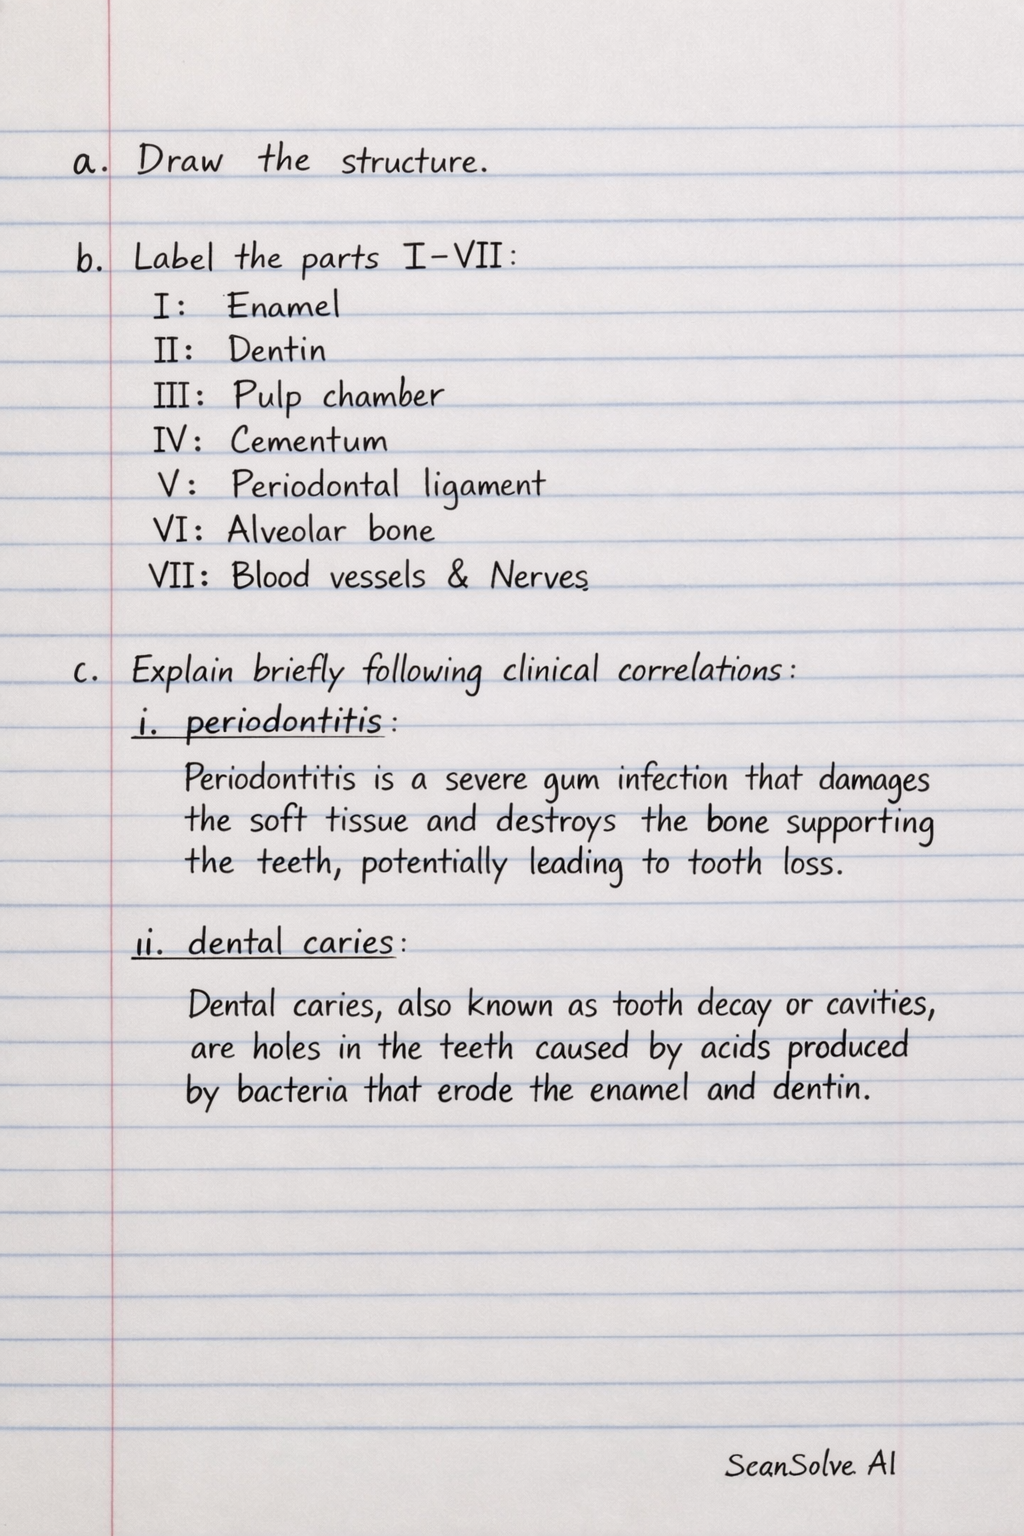 a. Draw the structure.
b. Label the parts I-VII:
I: Enamel
II: Dentin
III: Pulp chamber
IV: Cementum
V: Periodontal ligament
VI: Alveolar bone
VII: Blood vessels & Nerves.
c. Explain briefly following clinical correlations:
i. periodontitis:
Periodontitis is a severe gum infection that damages
the soft tissue and destroys the bone supporting
the teeth, potentially leading to tooth loss.
ii. dental caries:
Dental caries, also known as tooth decay or cavities,
are holes in the teeth caused by acids produced
by bacteria that erode the enamel and dentin.
ScanSolve AI